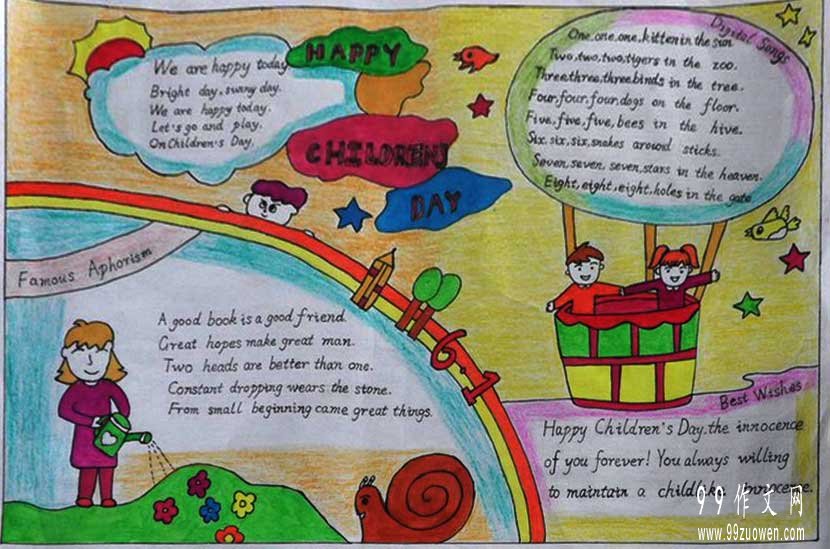 HAPPY
CHILDRENS
DAY
We are happy today
Bright day, sunny day.
We are happy today.
Let's go and play,
On Children's Day,
Digital Songs
One,one,one,kitten in the sun
Two,two,two,tigers in the zoo.
Three,three,three,birds in the tree.
Four,four,four,dogs on the floor.
Five,five,five,bees in the hive.
Six,six,six,snakes around sticks.
Seven,seven,seven,stars in the heaven.
Eight,eight,eight,holes in the gate.
Famous Aphorism
A good book is a good friend.
Great hopes make great man.
Two heads are better than one.
Constant dropping wears the stone.
From small beginning came great things.
6.1
Best Wishes
Happy Children's Day.the innocence
of you forever! You always willing
to maintain a childlike innocence.
99作文网
www.99zuowen.com